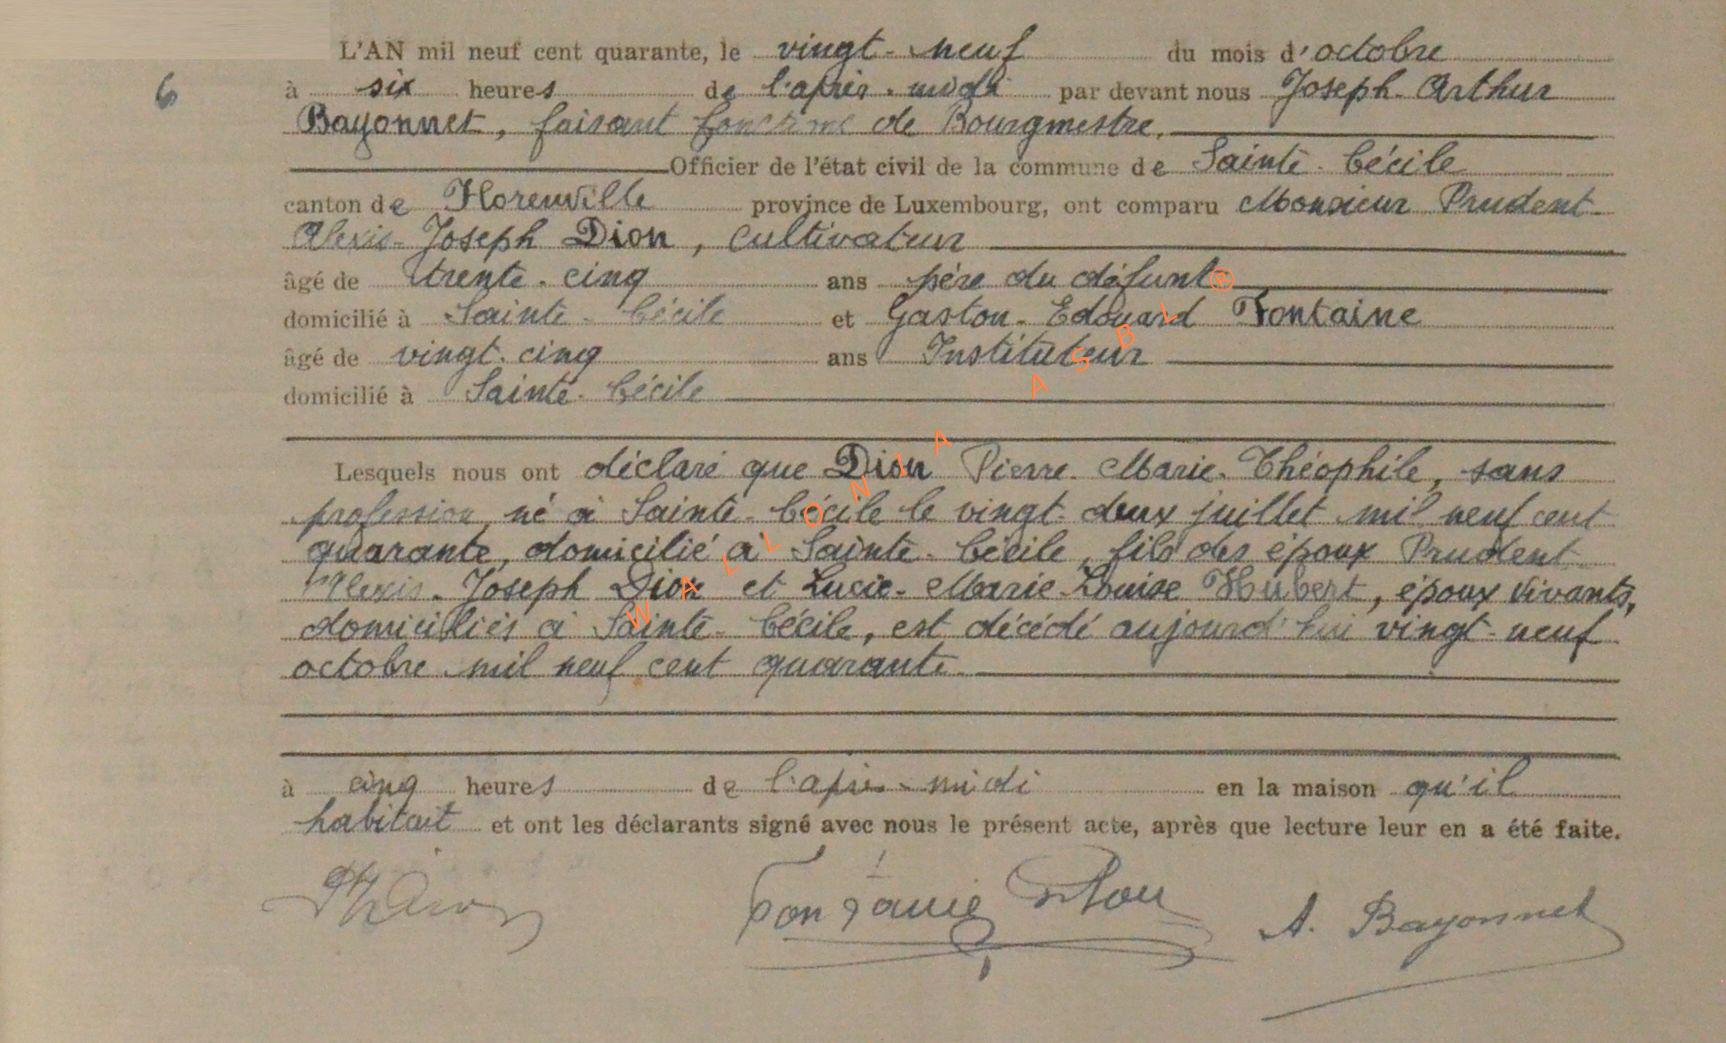 L'AN mil neuf cent quarante, le vingt-neuf du mois d'octobre
6 à six heures de l'après-midi par devant nous Joseph-Arthur
Bayonnet, faisant fonctions de Bourgmestre,
Officier de l'état civil de la commune de Sainte-Cécile
canton de Florenville province de Luxembourg, ont comparu Monsieur Prudent-
Alexis-Joseph Dion, cultivateur
âgé de trente-cinq ans père du défunt
domicilié à Sainte-Cécile et Gaston-Edouard Fontaine
âgé de vingt-cinq ans Instituteur
domicilié à Sainte-Cécile
Lesquels nous ont déclaré que Dion Pierre-Marie-Théophile, sans
profession, né à Sainte-Cécile le vingt-deux juillet mil neuf cent
quarante, domicilié à Sainte-Cécile, fils des époux Prudent-
Alexis-Joseph Dion et Lucie-Marie-Louise Hubert, époux vivants,
domiciliés à Sainte-Cécile, est décédé aujourd'hui vingt-neuf
octobre mil neuf cent quarante
à cinq heures de l'après-midi en la maison qu'il
habitait et ont les déclarants signé avec nous le présent acte, après que lecture leur en a été faite.
Fontaine Gaston A. Bayonnet
WALLONIA ASBL ®